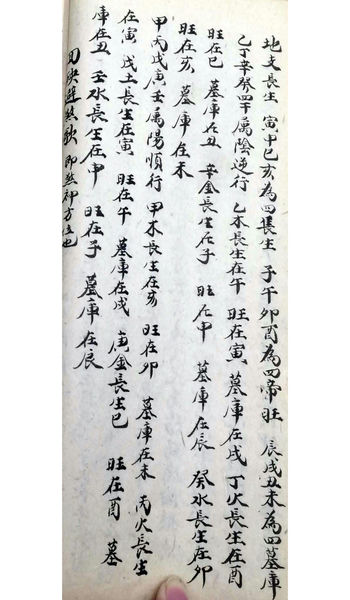 地支長生 寅申巳亥為四長生 子午卯酉為四帝旺 辰戌丑未為四墓庫
乙丁辛癸四干屬陰逆行 乙木長生在午 旺在寅 墓庫在戌 丁火長生在酉
旺在巳 墓庫在丑 辛金長生在子 旺在申 墓庫在辰 癸水長生在卯
旺在亥 墓庫在未
甲丙戊庚壬屬陽順行 甲木長生在亥 旺在卯 墓庫在未 丙火長生
在寅 戊土長生在寅 旺在午 墓庫在戌 庚金長生巳 旺在酉 墓
庫在丑 壬水長生在申 旺在子 墓庫在辰
避煞 即煞 方位也